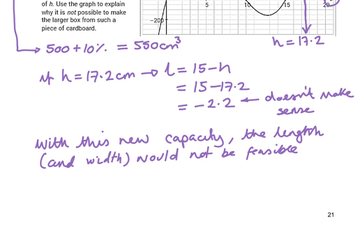 of h. Use the graph to explain
why it is not possible to make
the larger box from such a
piece of cardboard.
-200
5
10
15
20
h = 17.2
→ 500 + 10% = 550cm³
if h = 17.2cm → l = 15 - h
= 15 - 17.2
= -2.2 ← doesn't make
sense
With this new capacity, the length
(and width) would not be feasible
21